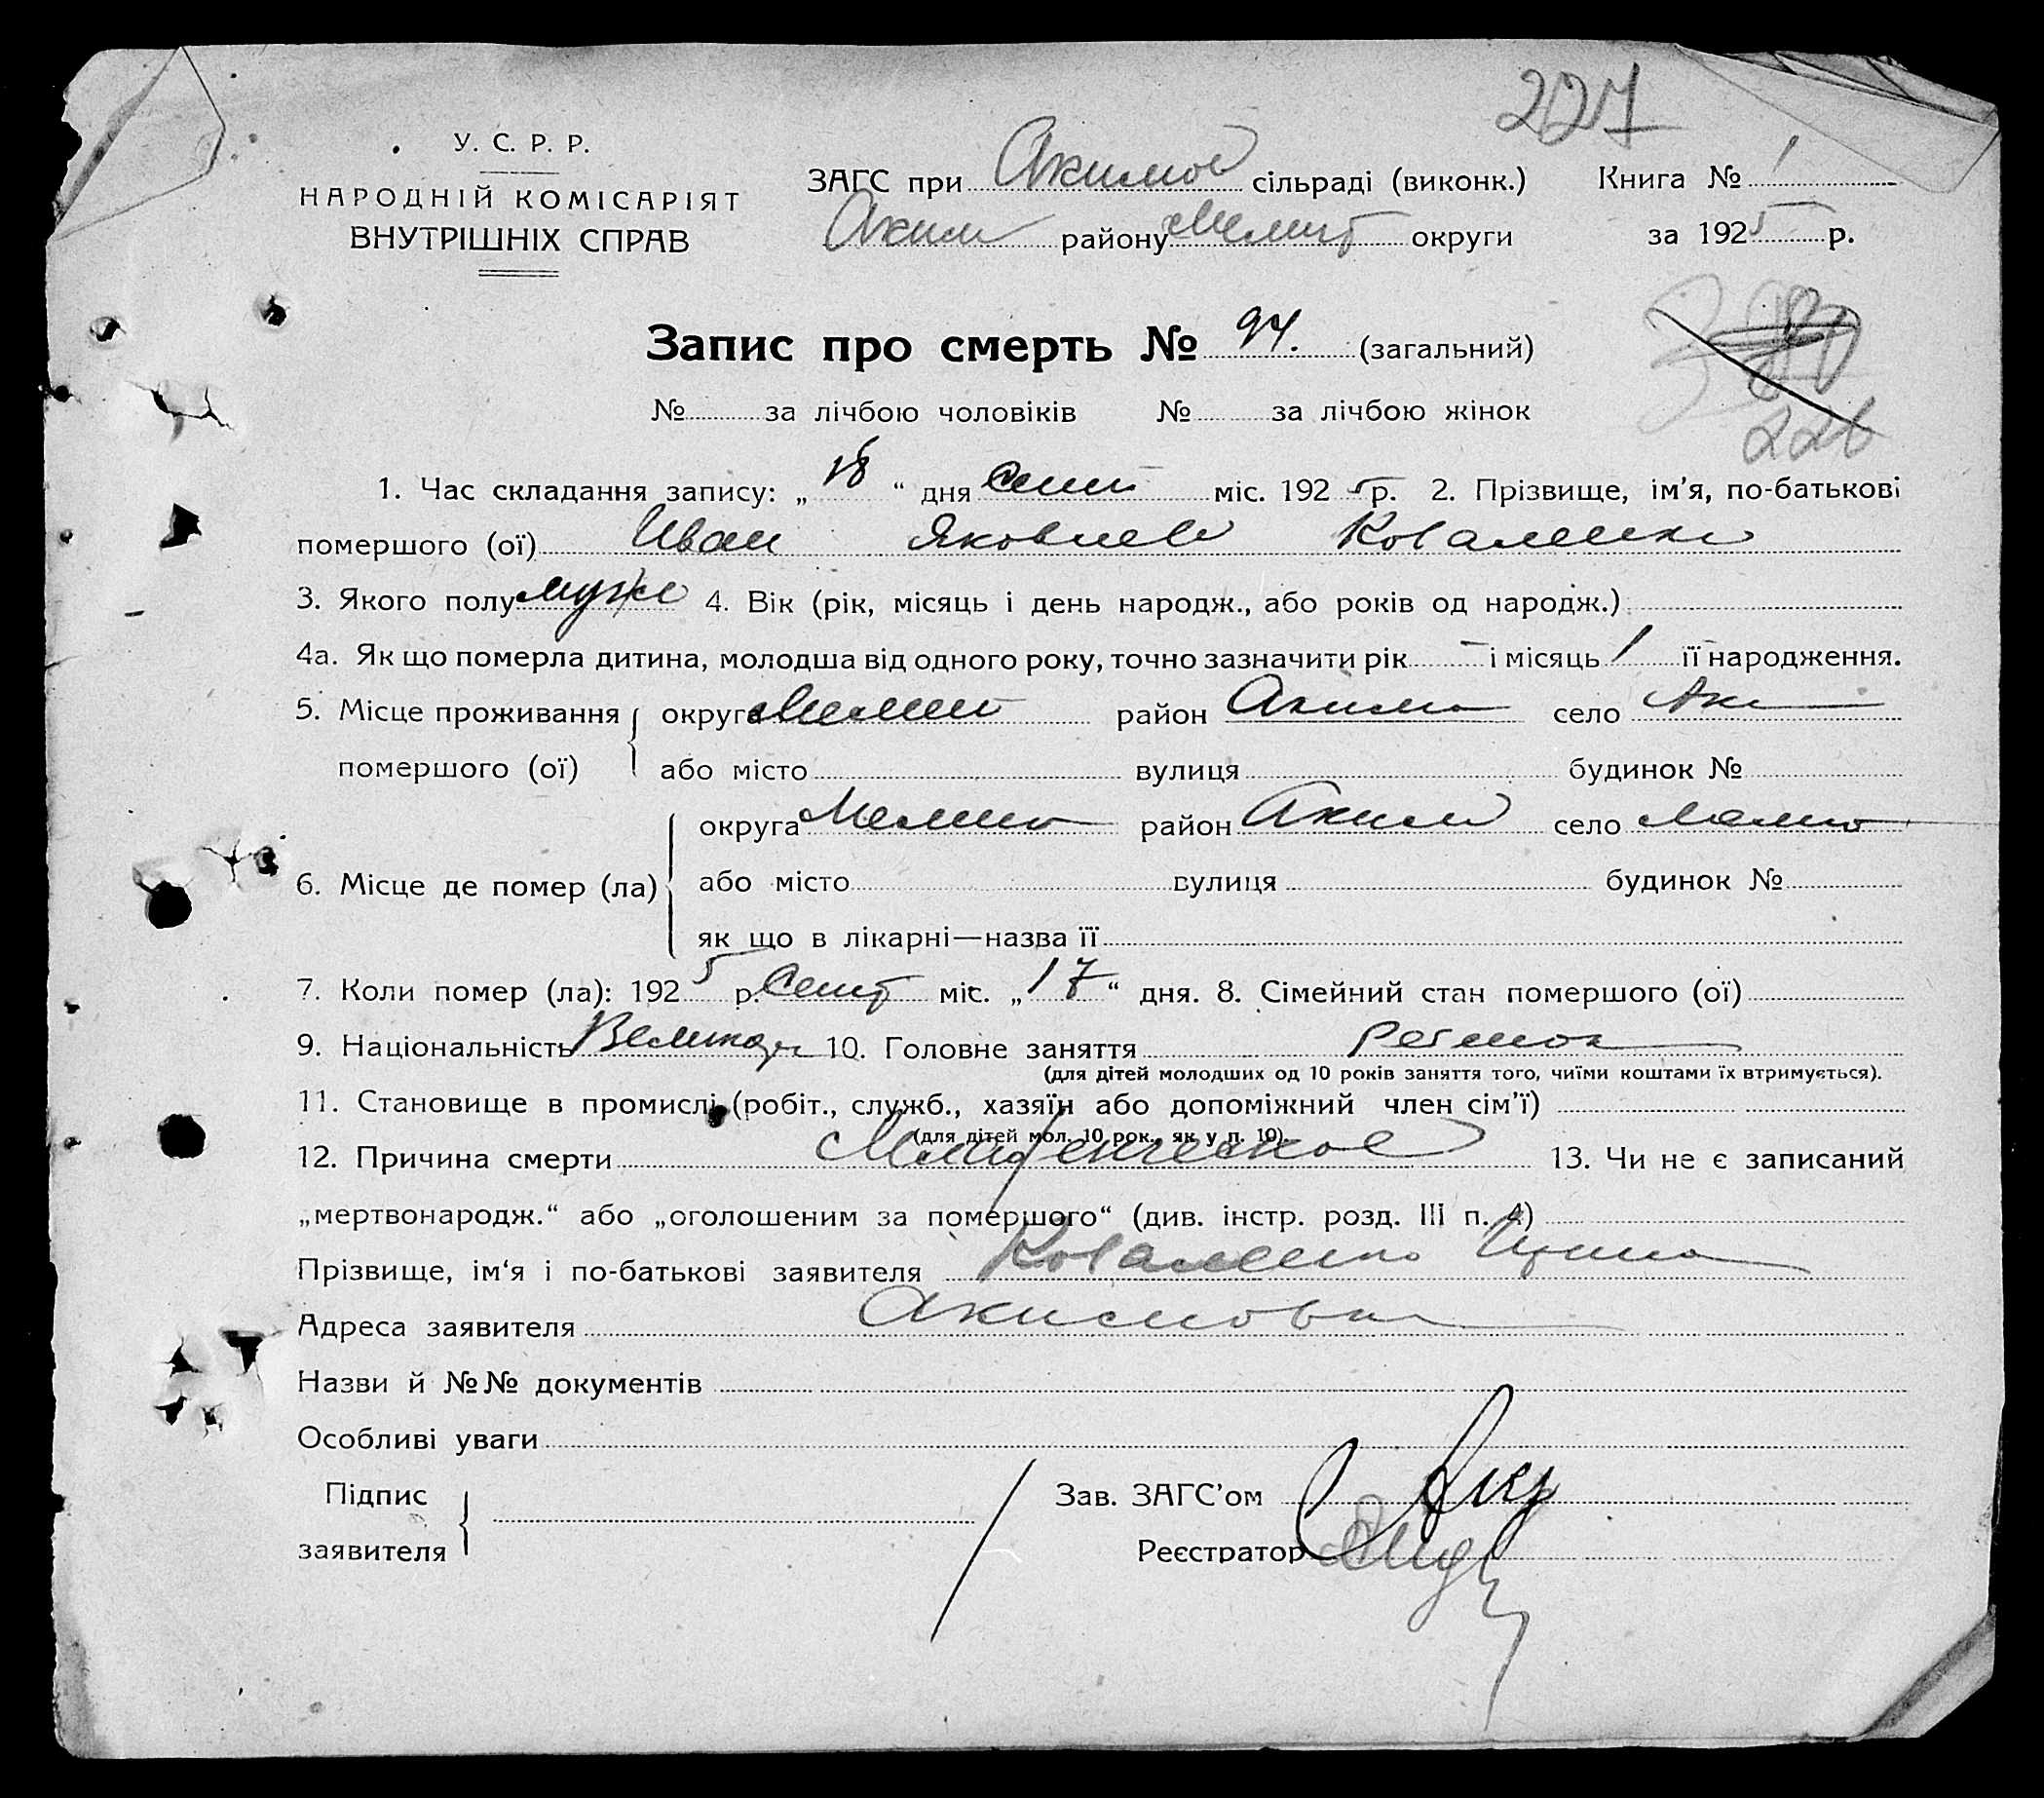 227
У. С. Р. Р.
НАРОДНІЙ КОМІСАРІЯТ
ВНУТРІШНІХ СПРАВ
ЗАГС при Акимов сільраді (виконк.) Книга № 1
Аким району Мелит округи за 1925 р.
Запис про смерть № 94. (загальний)
№ за лічбою чоловіків № за лічбою жінок
226
1. Час складання запису: „18“ дня Сент міс. 1925 р. 2. Прізвище, ім'я, по-батькові
помершого (ої) Иван Яковлев Коваленко
3. Якого полу муже 4. Вік (рік, місяць і день народж., або років од народж.)
4а. Як що померла дитина, молодша від одного року, точно зазначити рік – і місяць 1 її народження.
5. Місце проживання округа Мелит район Акимо село Аки
помершого (ої) або місто вулиця будинок №
округа Мелито район Аким село
6. Місце де помер (ла) або місто вулиця будинок №
як що в лікарні—назва її
7. Коли помер (ла): 1925 р. Сент міс. „17“ дня. 8. Сімейний стан помершого (ої)
9. Національність Великор 10. Головне заняття
(для дітей молодших од 10 років заняття того, чиїми коштами їх втримується).
11. Становище в промислі (робіт., служб., хазяїн або допоміжний член сім'ї)
(для дітей мол. 10 рок., як у п. 10).
12. Причина смерти Младенческое 13. Чи не є записаний
„мертвонародж.“ або „оголошеним за помершого“ (див. інстр. розд. III п. 4)
Прізвище, ім'я і по-батькові заявителя Коваленко
Адреса заявителя Акимовка
Назви й №№ документів
Особливі уваги
Підпис
заявителя
Зав. ЗАГС'ом
Реєстратор